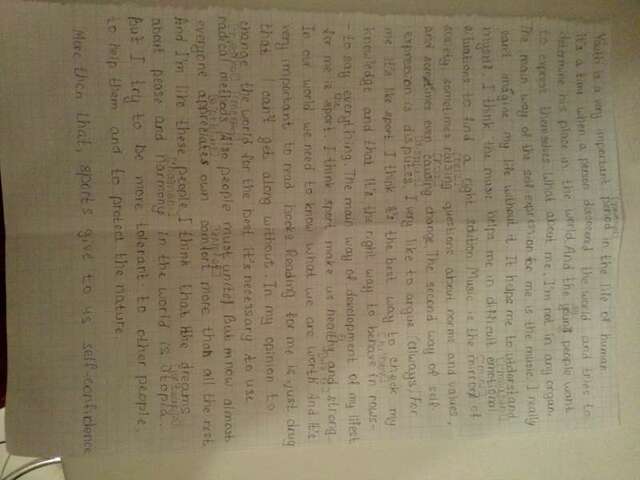 Youth is a very important period in the life of human.
It's a time when a person discovered the world and tries to
determine his place in the world. And the young people want
to express themselves. What about me, I'm not in any organ.
The main way of the self expression for me is the music. I really
can't imagine my life without it. It helps me to understand
myself. I think the music helps me in difficult emotional
situations to find a right solution. Music is the mirror of
society sometimes raising questions about norms and values,
and sometimes even causing change. The second way of self
expression is disputes. I very like to argue (always). For
me it's like sport. I think it's the best way to check my
knowledge and that it's the right way to behave in rows-
to say everything. The main way of development of my
for me is sport. I think sport make us healthy and strong
In our world we need to know what we are worth. And it's
very important to read books. Reading for me is just drug
that I can't get along without. In my opinion to
change the world for the best it's necessary to use
radical methods. Also people must unite! But now almost
everyone appreciates own comfort more than all the rest.
And I'm like these people. I think that the dreams
about peace and harmony in the world is utopia.
But I try to be more tolerant to other people,
to help them and to protect the nature
More then that, sports give to us self-confidence